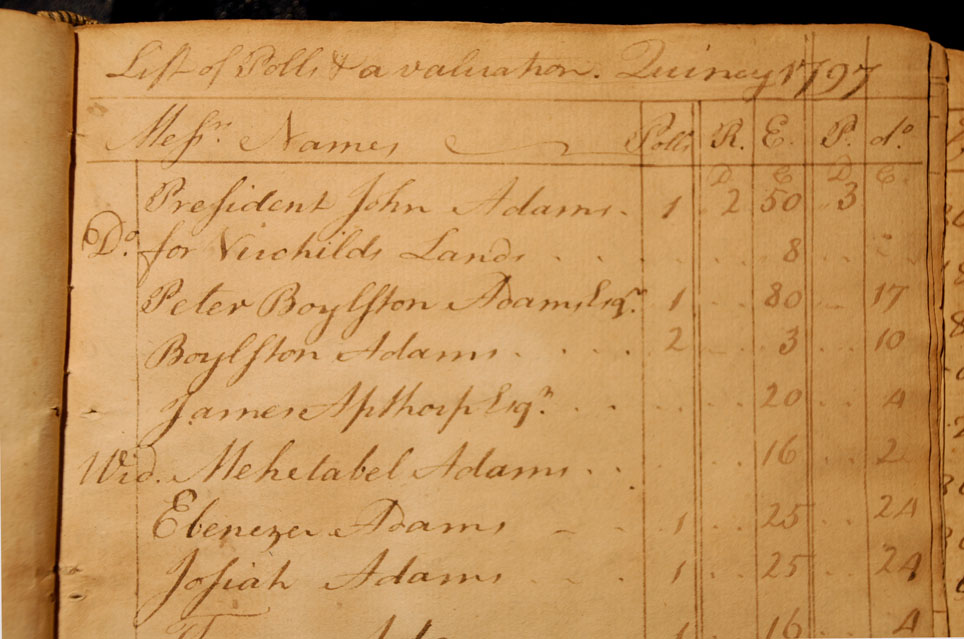 List of Polls & a valuation. Quincy 1797
Messrs. Names Polls R. E. P. do.
D. C. D. C.
President John Adams. 1 2 50 3
Do. for Virchilds Lands . . . . 8
Peter Boylston Adams Esqr. 1 . . 80 . . 17
Boylston Adams . . . . 2 . . 3 . . 10
James Apthorp Esqr. . . . . . 20 . . 4
Wid. Mehetabel Adams . . . . 16 . . 2
Ebenezer Adams 1 . . 25 . . 24
Josiah Adams . . . 1 . . 25 . . 24
1 16 4